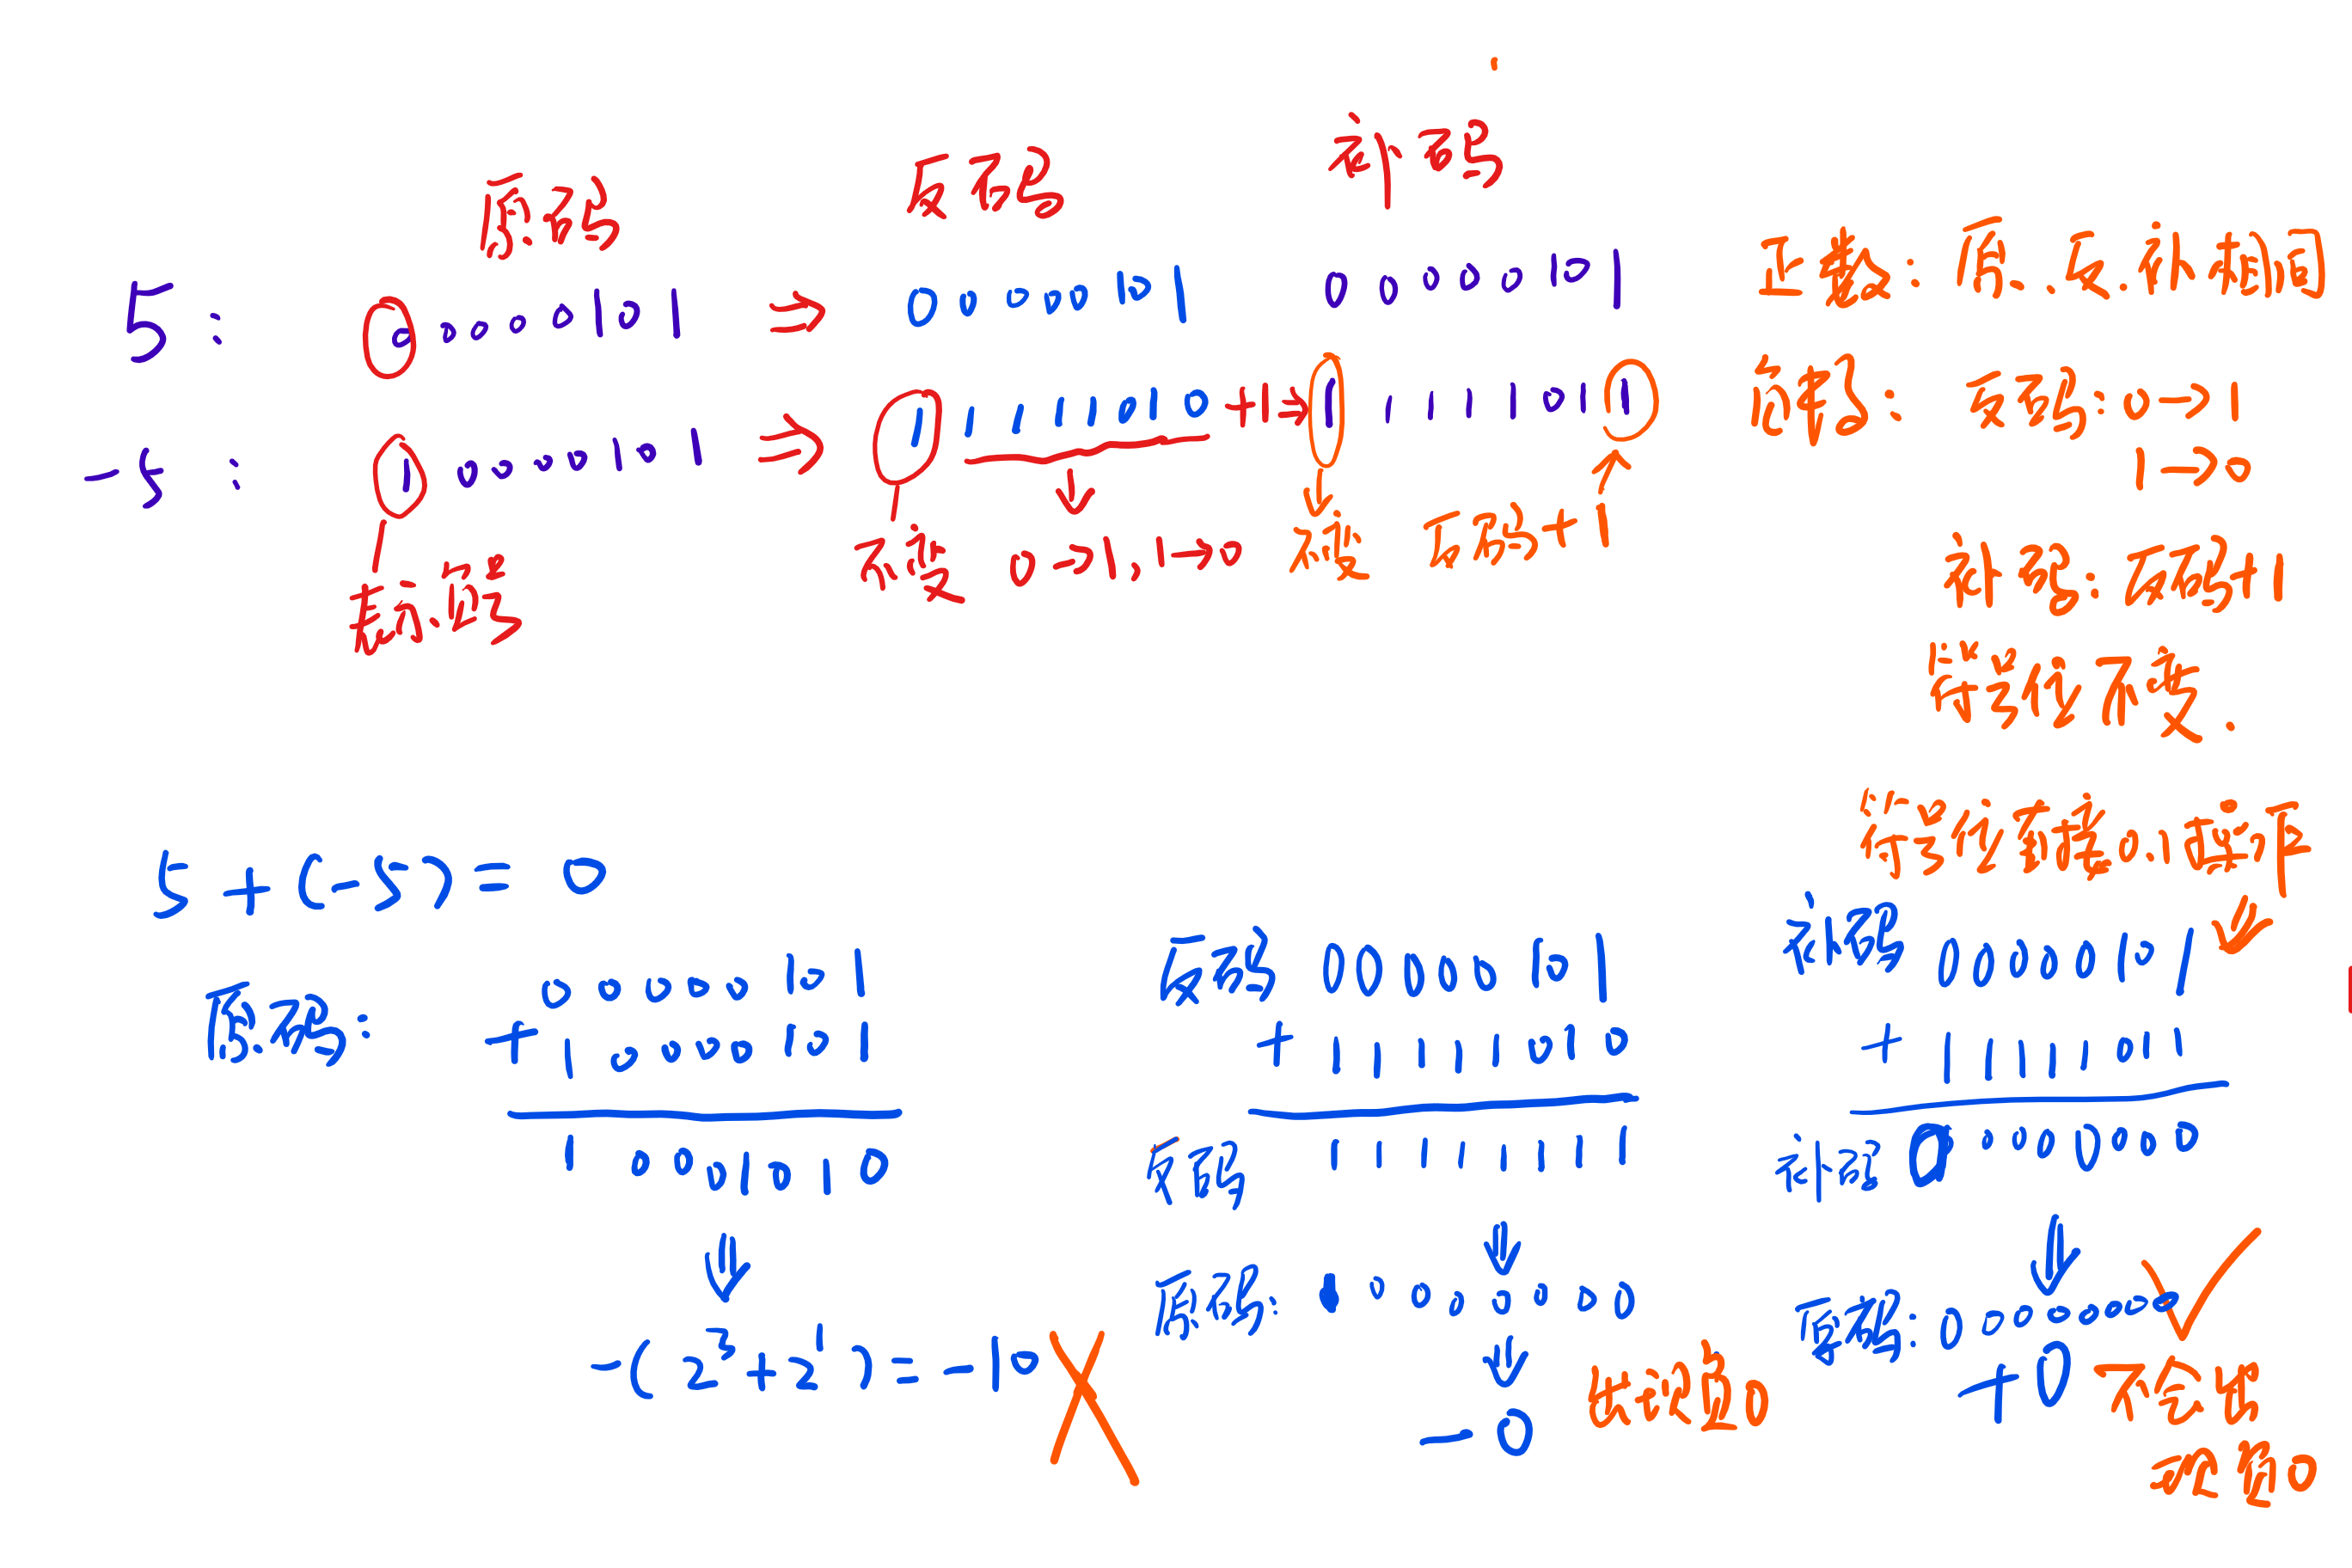 原码 反码 补码
5: 00000101 ⇒ 00000101 00000101
-5: 10000101 ⇒ 11111010 +1→ 11111011
表示符号
不变 0→1, 1→0
不变 反码+1
正数: 原.反.补相同
负数: 反码: 0→1
1→0
补码: 反码+1
符号位不变.
5+(-5)=0
原码: 00000101
+10000101
10001010
-(2³+2¹)=-10
反码 00000101
+11111010
反码 11111111
原码: 10000000
-0
出现负0
符号位直接0.1
补码 00000101
+11111011
补码 00000000
原码: 00000000
+0 不会出
现负0